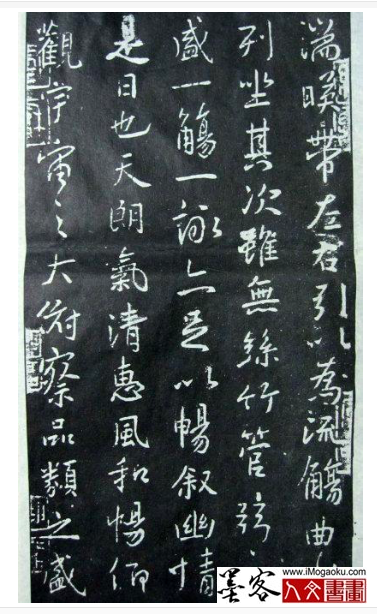 湍暎帶左右引以為流觴曲
列坐其次雖無絲竹管弦
盛一觴一詠亦足以暢叙幽情
是日也天朗氣清惠風和暢仰
觀宇宙之大俯察品類之盛
www.iMogaoku.com
墨客